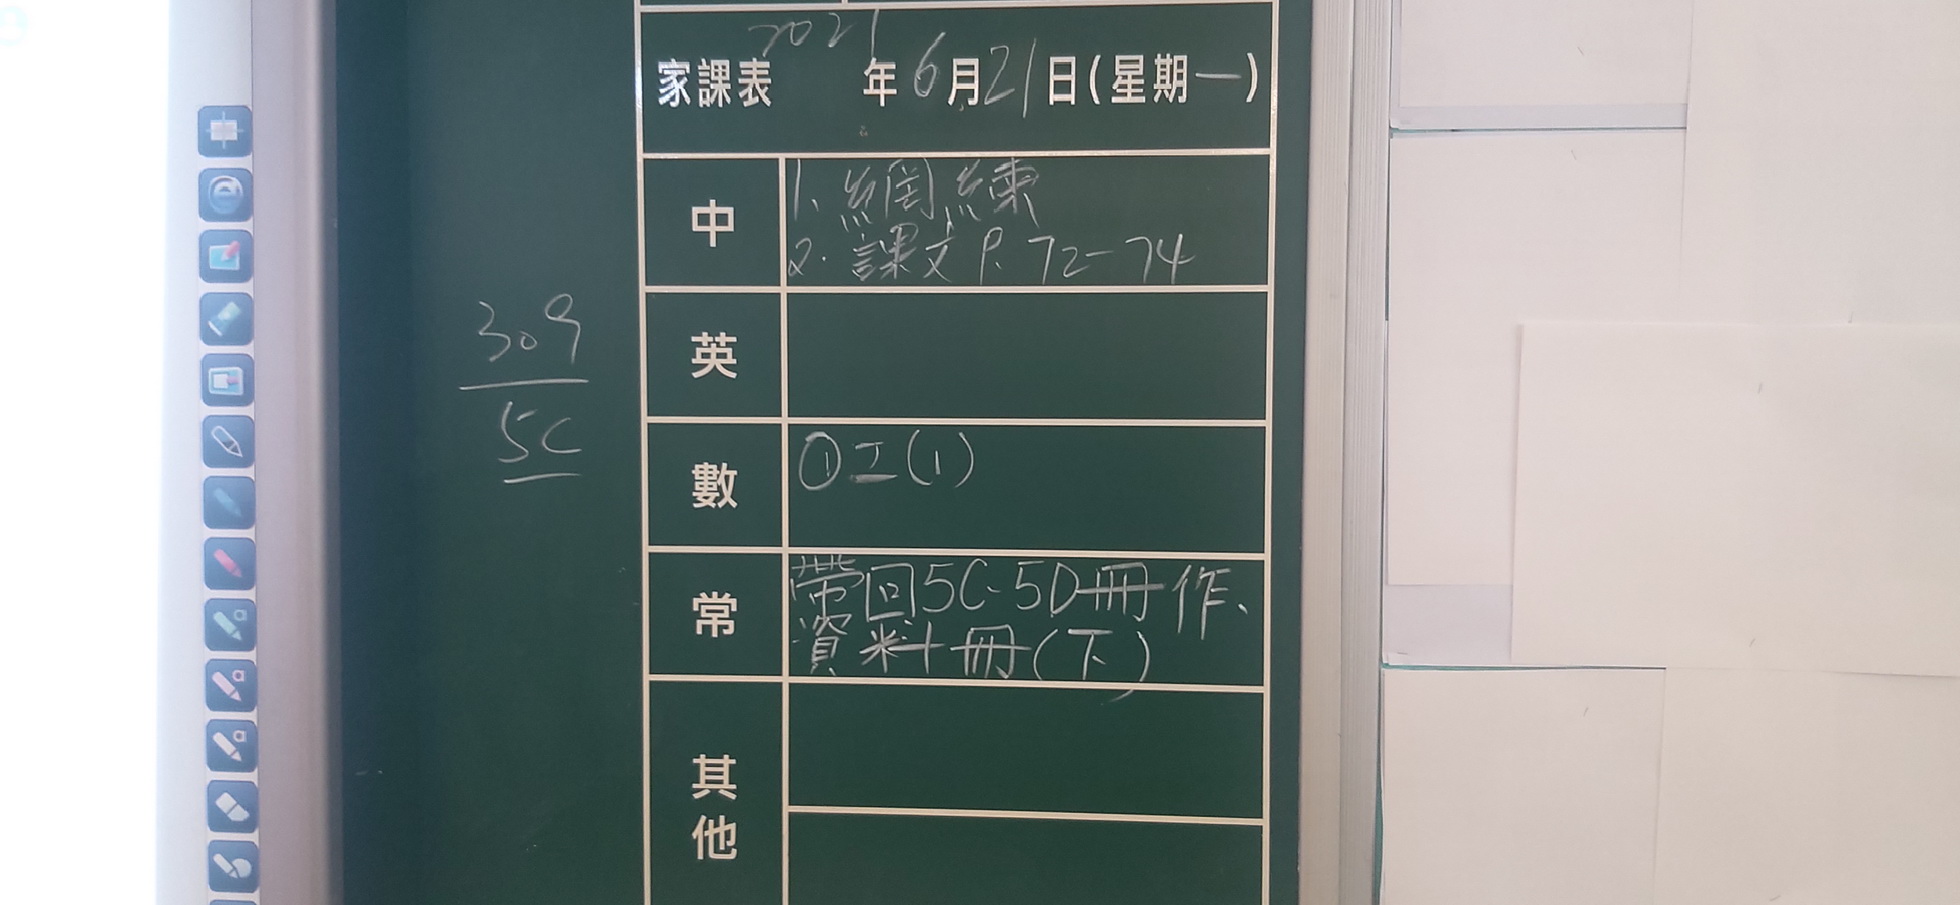 家課表 2021年6月21日(星期一)
中
1. 網練
2. 課文 P. 72-74
英
數
①工(1)
常
帶回5C-5D冊作、
資料冊(下)
其他
309
5C